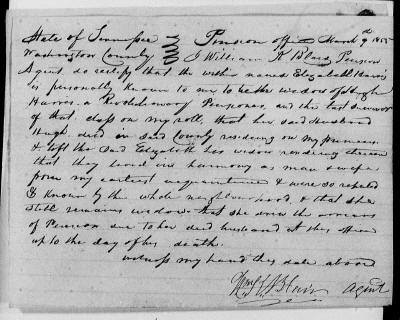 State of Tennessee Pension office March 9th 1855
Washington County I William K Blair Pension
Agent do certify that the within named Elizabeth Harris
is personally known to me to be the widow of Hugh
Harris. a Revolutionary Pensioner, and the last
of that class on my roll, that her said Husband
Hugh died in said County residing on my premises
& left the said Elizabeth his widow residing thereon
that they lived in harmony as man & wife
from my earliest acquaintance & were so reputed
& known by the whole neighbourhood, & that she
still remains widow & that she drew the arrears
of Pension due to her decd husband at this office
up to the day of his death.
witness my hand this date above
Blair Agent